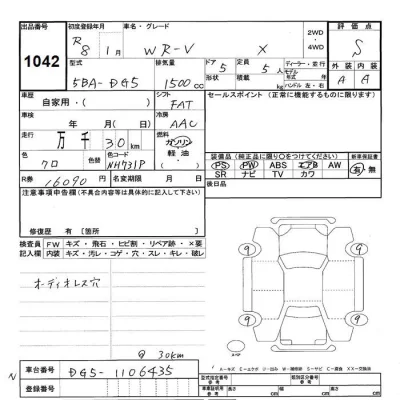 出品番号 初度登録年月 車名・グレード 2WD ・ 4WD 評価点
1042 R 8 1月 WR-V X S
型式 排気量 ドア 定員 ディーラー・並行 外装 内装
5BA-DG5 1500cc 形状 5 5人 モデル年式 ハンドル 左・右 A A
車歴 シフト 積載量 kg セールスポイント (正常に機能するものに限ります)
自家用・( ) FAT
車検 冷房
年 月 AAC
走行 燃料
万 千 30km ガソリン・軽油・
色 色替 色コード 装備品 (純正品に限り○をつけてください) 新車保証書
クロ NH731P PS PW ABS エアB AW 有・無
R券 16090 名変期限 月 日 SR ナビ TV カワ
注意事項申告欄(不具合内容などは具体的に記入して下さい) 後日品
修復歴 有 [箇所 ]
検査員記入欄 FW キズ・飛石・ヒビ割・リペア跡・×要
内装 キズ・汚レ・コゲ・穴・スレ・キレ・破レ
オーディオレス穴
9 9
9 9
@ 30km
A…キズ E…エクボ U…凹み W…補修跡 S…サビ C…腐食 XX…交換済
車台番号 DG5-1106435 型式指定番号 参考 類別区分番号 参考
登録番号 車両証明用 参考 長さ cm 幅 cm 高さ cm